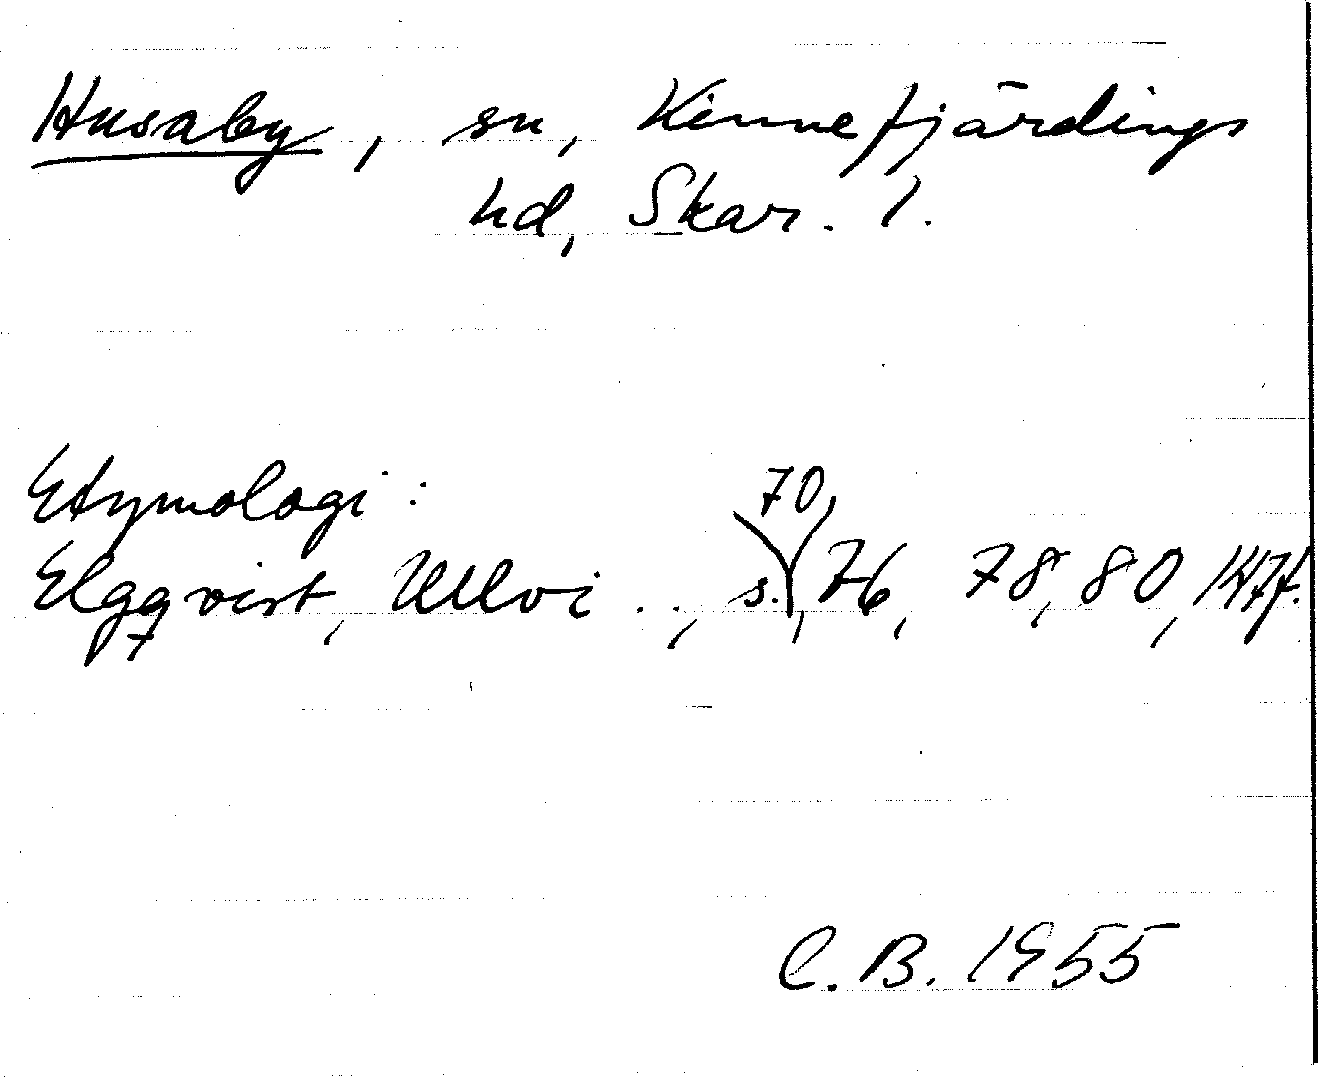 Husaby, sn, Kinnefjärdings
hd, Skar. l.
Etymologi:
Elgqvist, Ullvi.., s. 70, 76, 78, 80, 147f.
C.B. 1955